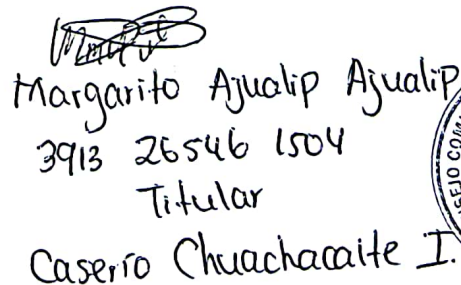 Margarito Ajualip Ajualip
3913 26546 1504
Titular
Caserío Chuachacaite I.
SEJO COM